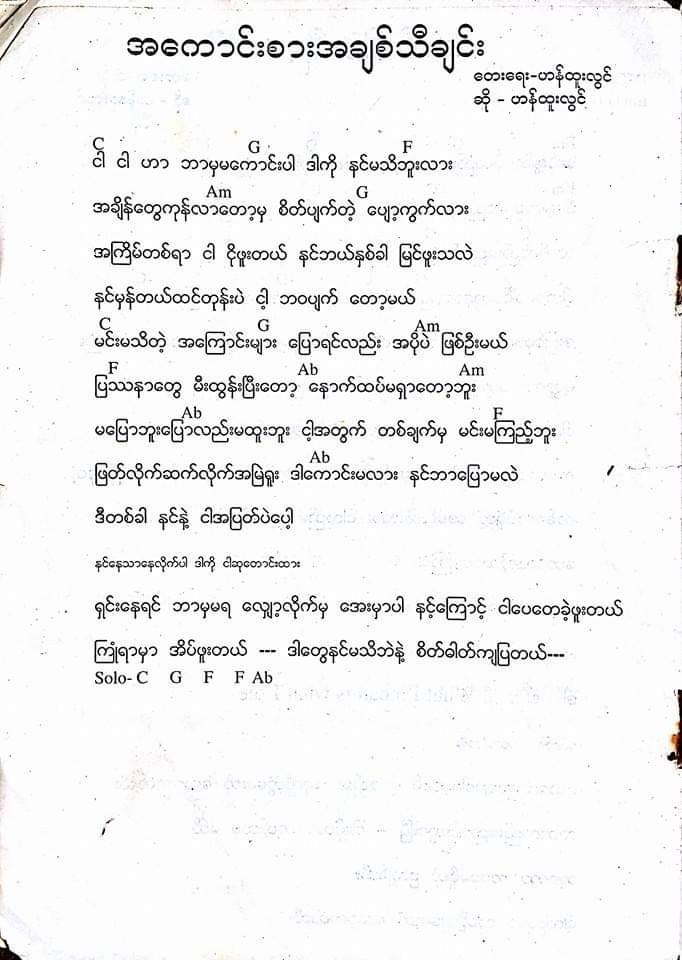 အကောင်းစားအချစ်သီချင်း
တေးရေး-ဟန်ထူးလွင်
ဆို - ဟန်ထူးလွင်
C G F
ငါ ငါ ဟာ ဘာမှမကောင်းပါ ဒါကို နင်မသိဘူးလား
Am G
အချိန်တွေကုန်လာတော့မှ စိတ်ပျက်တဲ့ ပျော့ကွက်လား
အကြိမ်တစ်ရာ ငါ ငိုဖူးတယ် နင်ဘယ်နှစ်ခါ မြင်ဖူးသလဲ
နင်မှန်တယ်ထင်တုန်းပဲ ငါ့ ဘဝပျက် တော့မယ်
C G Am
မင်းမသိတဲ့ အကြောင်းများ ပြောရင်လည်း အပိုပဲ ဖြစ်ဦးမယ်
F Ab Am
ပြဿနာတွေ မီးထွန်းပြီးတော့ နောက်ထပ်မရှာတော့ဘူး
Ab F
မပြောဘူးပြောလည်းမထူးဘူး ငါ့အတွက် တစ်ချက်မှ မင်းမကြည့်ဘူး
Ab
ဖြတ်လိုက်ဆက်လိုက်အမြဲရူး ဒါကောင်းမလား နင်ဘာပြောမလဲ
ဒီတစ်ခါ နင်နဲ့ ငါအပြတ်ပဲပေါ့
နင်နေသာနေလိုက်ပါ ဒါကို ငါဆုတောင်းထား
ရှင်းနေရင် ဘာမှမရ လျှော့လိုက်မှ အေးမှာပါ နင့်ကြောင့် ငါပေတေခဲ့ဖူးတယ်
ကြုံရာမှာ အိပ်ဖူးတယ် --- ဒါတွေနင်မသိဘဲနဲ့ စိတ်ဓါတ်ကျပြတယ်---
Solo- C G F F Ab